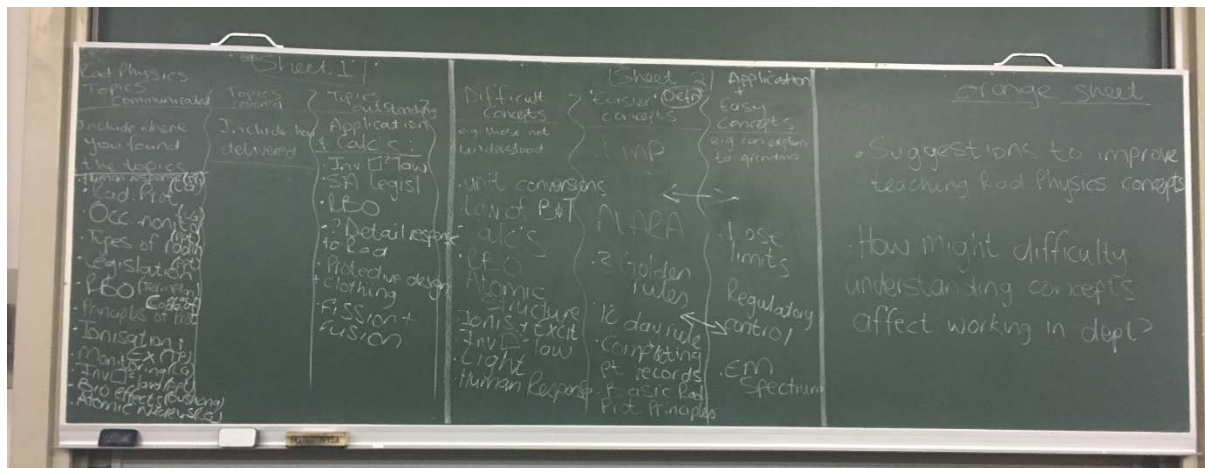 Sheet 1
Rad Physics
Topics
communicated
Include where
you found
the topics
Human response
Rad. Prot
Occ. monito
Types of radn
Legislation
RBO
Principles of
Ionisation +
Monitoring
Inv □ law
Bio effects (Bushong)
Atomic
Topics
Include how
delivered
Topics
outstanding
Application
& Calcs:
Inv □ law
SA Legisl
RBO
? Detail response
to Rad
Protective design
+ clothing
Fission +
Fusion
Sheet 2
Difficult
Concepts
e.g. those not
understood
unit conversions
Law of B&T
calc's
RBO
Atomic
Structure
Ionis + Excit
Inv □ law
Light
Human Response
"Easier" Defn
concepts
LMP
ALARA
3 Golden
rules
10 day rule
Completing
pt records
Basic Rad
Prot Principles
Application
+
Easy
Concepts
e.g. can explain
to grandma
Dose
limits
Regulatory
control
EM
Spectrum
orange sheet
Suggestions to improve
teaching Rad. Physics concepts
How might difficulty
understanding concepts
affect working in dept?